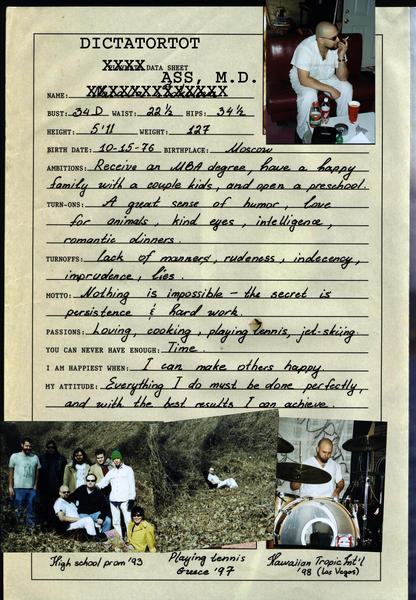 DICTATORTOT
DATA SHEET
ASS, M.D.
NAME:
BUST: 34 D WAIST: 22 ½ HIPS: 34 ½
HEIGHT: 5'11 WEIGHT: 127
BIRTH DATE: 10-15-76 BIRTHPLACE: Moscow
AMBITIONS: Receive an MBA degree, have a happy
family with a couple kids, and open a preschool.
TURN-ONS: A great sense of humor, love
for animals, kind eyes, intelligence,
romantic dinners.
TURNOFFS: lack of manners, rudeness, indecency,
imprudence, lies.
MOTTO: Nothing is impossible – the secret is
persistence & hard work.
PASSIONS: Loving, cooking, playing tennis, jet-skiing.
YOU CAN NEVER HAVE ENOUGH: Time.
I AM HAPPIEST WHEN: I can make others happy.
MY ATTITUDE: Everything I do must be done perfectly,
and with the best results I can achieve.
High school prom '93
Playing tennis
Greece '97
Hawaiian Tropic Int'l
'98 (Las Vegas)